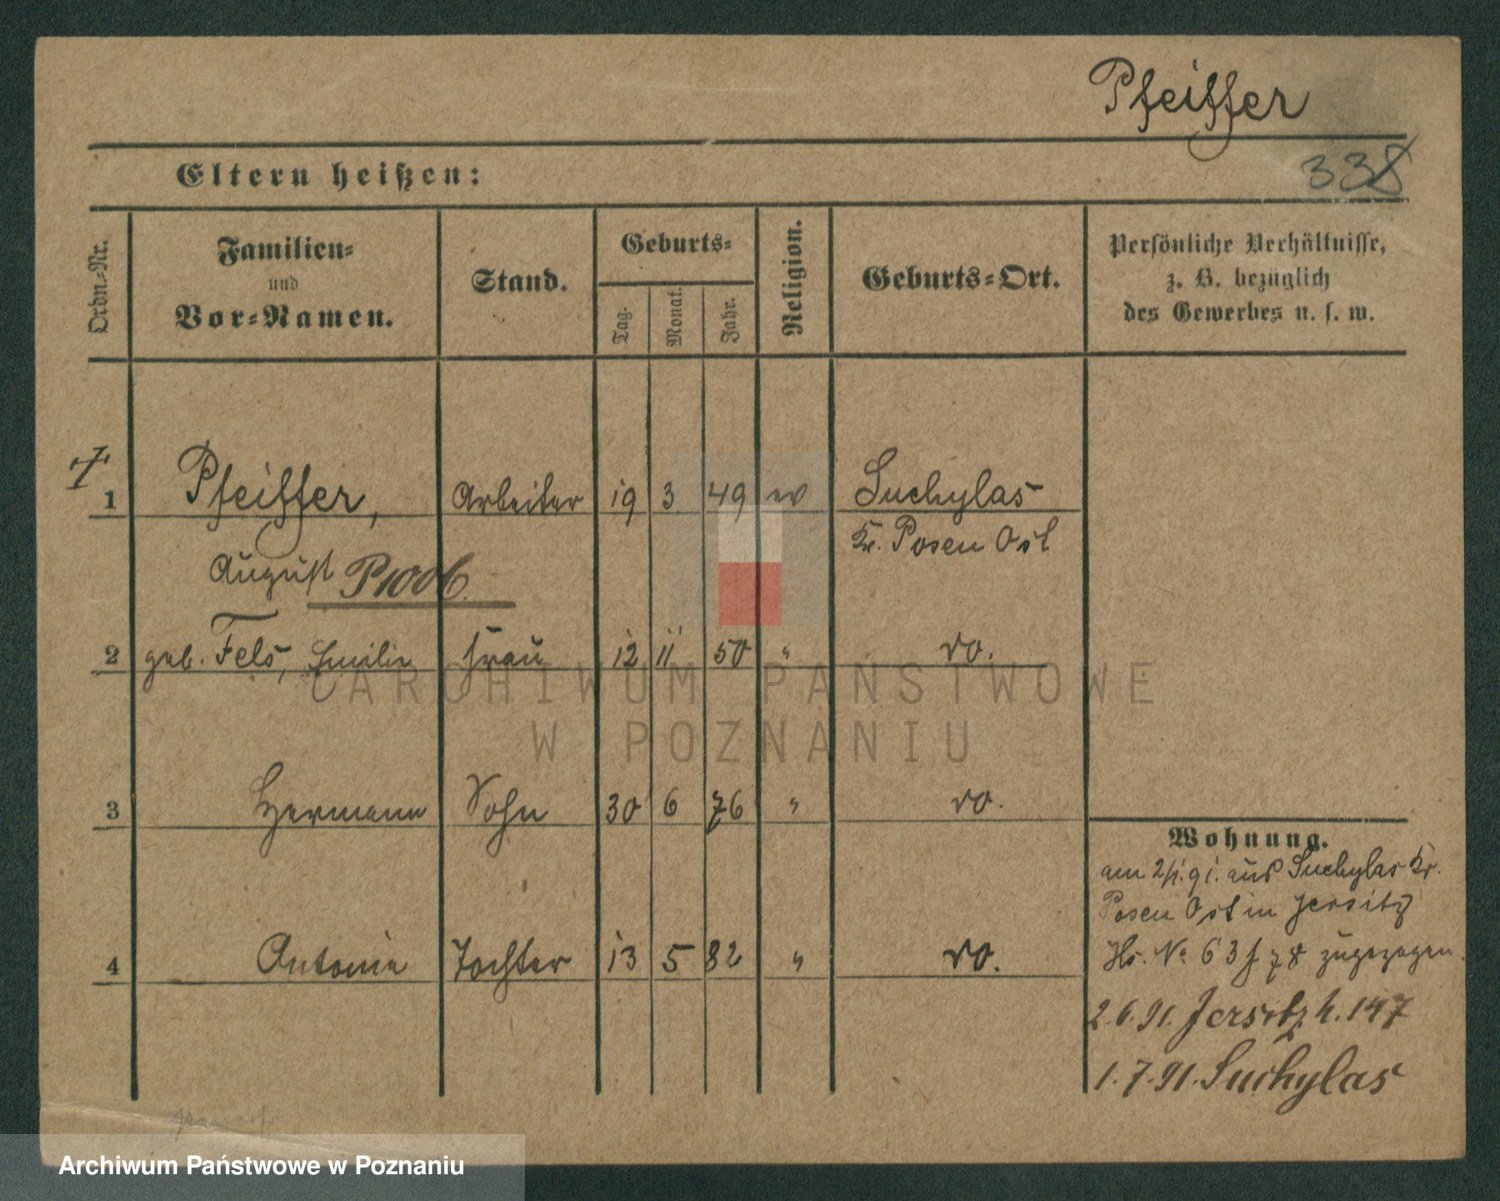 Pfeiffer
338
Eltern heißen:
Ordn.-Nr.
Familien-
und
Vor-Namen.
Stand.
Geburts-
Tag.
Monat.
Jahr.
Religion.
Geburts-Ort.
Persönliche Verhältnisse,
z. B. bezüglich
des Gewerbes u. s. w.
1 Pfeiffer, Arbeiter 19 3 49 ev Suchylas
August Kr. Posen Ost
2 geb. Fels, Emilie Frau 12 11 50 " do.
3 Hermann Sohn 30 6 76 " do.
4 Antonie Tochter 13 5 82 " do.
Wohnung.
am 2/1. 91. aus Suchylas Kr.
Posen Ost in Jersitz
Hs. No 63 zugezogen.
2.6.91. Jersitz h. 147
1.7.91. Suchylas
ARCHIWUM PAŃSTWOWE
W POZNANIU
Archiwum Państwowe w Poznaniu